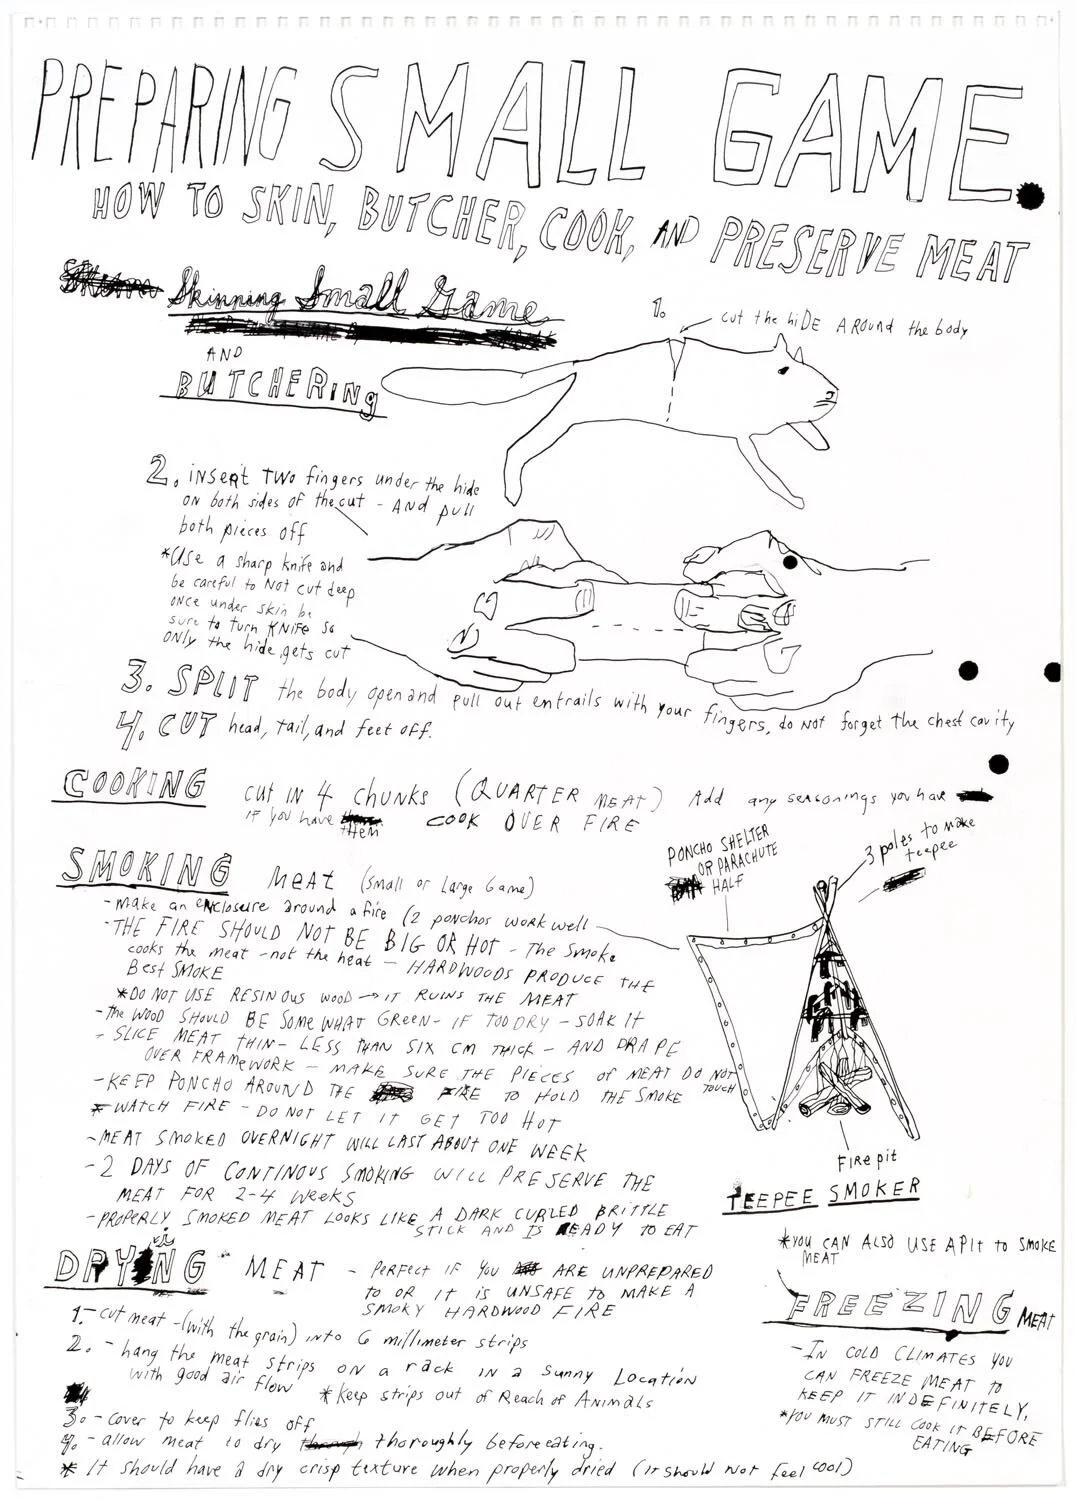 PREPARING SMALL GAME.
HOW TO SKIN, BUTCHER, COOK, AND PRESERVE MEAT
Skinning Small Game
AND
BUTCHERINg
1. cut the hiDE AROUND the body
2. iNSERt TWO fingers under the hide
ON both sides OF the cut - AND pull
both pieces off
*USE a sharp knife and
be careful to NOT cut deep
ONCE under skin be
sure to turn KNIFE SO
ONLY the hide gets cut
3. SPLIT the body open and pull out entrails with your fingers, do NOT forget the chest cavity
4. CUT head, tail, and feet off.
COOKING cut IN 4 CHUNKS (QUARTER MEAT) Add any seasonings you have
IF YOU HAVE THEM COOK OVER FIRE
SMOKING MEAT (small or Large Game)
- make an ENclosure around a fire (2 ponchos WORK well
- THE FIRE SHOULD NOT BE BIG OR HOT - The Smoke
cooks the meat - not the heat - HARDWOODS PRODUCE THE
Best SMOKE
*DO NOT USE RESINOUS WOOD → IT RUINS THE MEAT
- the WOOD SHOULD BE SOMEWHAT GREEN - IF TOO DRY - SOAK IT
- SLICE MEAT THIN - LESS THAN SIX CM THICK - AND DRAPE
OVER FRAMEWORK - MAKE SURE THE PIECES of MEAT DO NOT
TOUCH
- KEEP PONCHO AROUND THE FIRE TO HOLD THE SMOKE
* WATCH FIRE - DO NOT LET IT GET TOO HOT
- MEAT SMOKED OVERNIGHT WILL LAST ABOUT ONE WEEK
- 2 DAYS OF CONTINOUS SMOKING WILL PRESERVE THE
MEAT FOR 2-4 WEEKS
- PROPERLY SMOKED MEAT LOOKS LIKE A DARK CURLED BRITTLE
STICK AND IS READY TO EAT
PONCHO SHELTER
OR PARACHUTE
HALF
3 poles to make
teepee
FIRE pit
TEEPEE SMOKER
*YOU CAN ALSO USE A PIT TO SMOKE
MEAT
DRYING MEAT - PERFECT IF YOU ARE UNPREPARED
TO OR IT IS UNSAFE TO MAKE A
SMOKY HARDWOOD FIRE
1. - cut meat - (with the grain) INTO 6 millimeter strips
2. - hang the meat strips ON a rack IN a sunny Location
with good air flow *Keep strips out of Reach of Animals
3. - cover to keep flies off
4. - allow meat to dry thoroughly before eating.
* It should have a dry crisp texture when properly dried (it should Not feel cool)
FREEZING MEAT
- IN COLD CLIMATES YOU
CAN FREEZE MEAT TO
KEEP IT INDEFINITELY.
*YOU MUST STILL COOK IT BEFORE
EATING